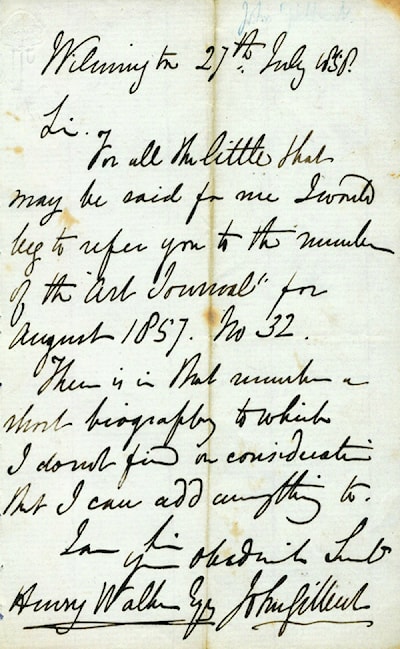 Wilmington 27th July 1858.
Sir.
For all the little that
may be said for me I would
beg to refer you to the number
of the "Art Journal" for
August 1857. No 32.
There is in that number a
short biography to which
I do not find on consideration
that I can add anything to.
I am Sir
your obedient Servt
Henry Walker Esq John Gilbert